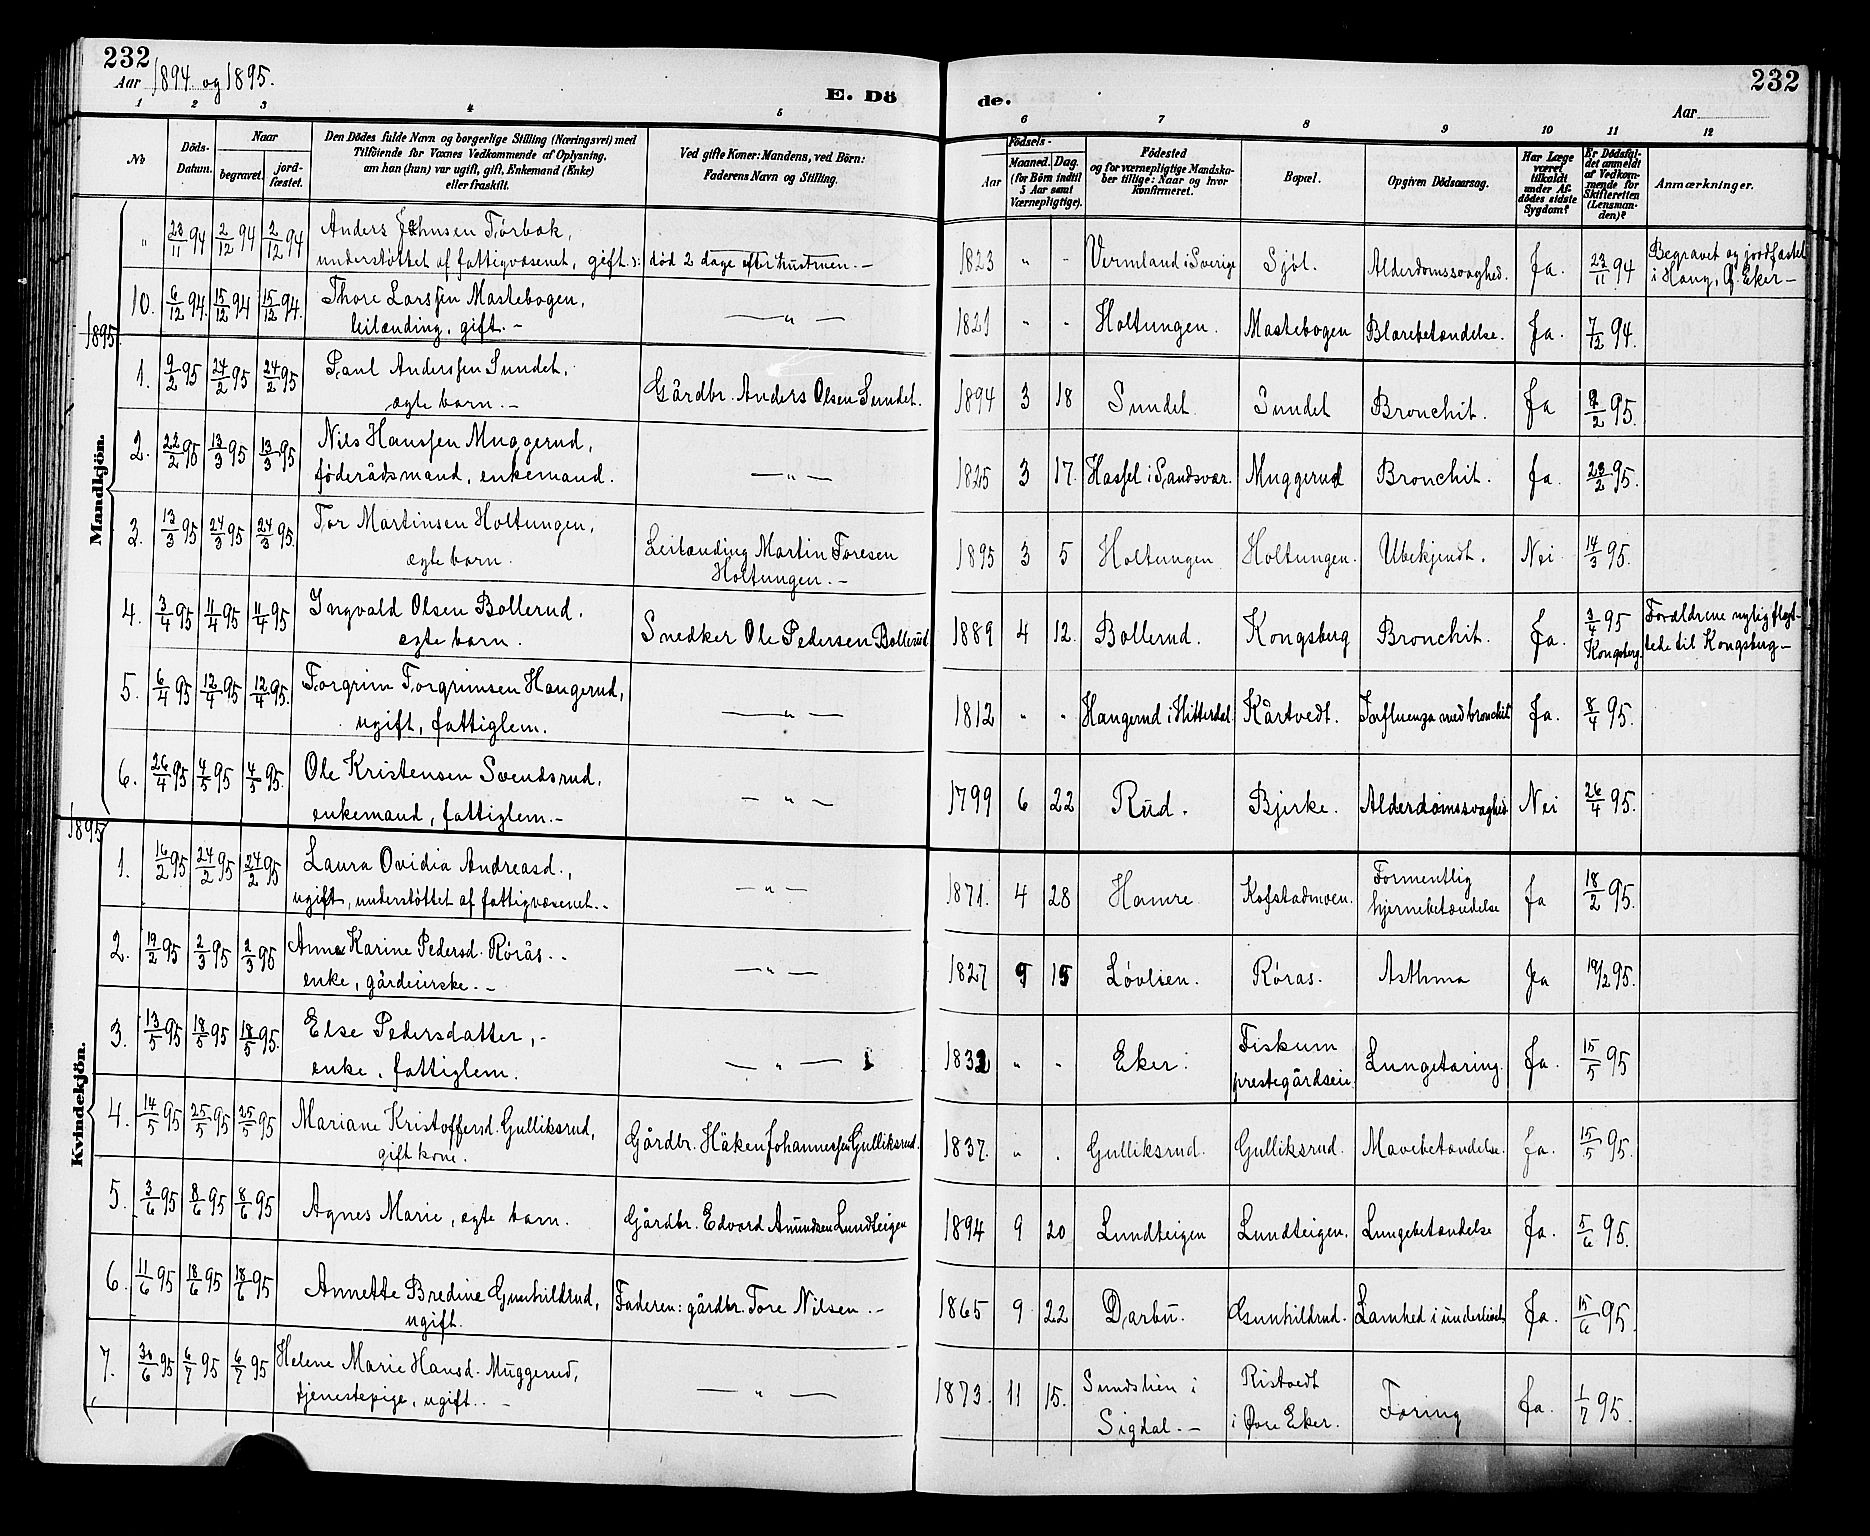 232
Aar 1894 og 1895.
E. Dö
de.
232
Aar
1 2 3 4 5 6 7 8 9 10 11 12
No
Döds-Datum.
Naar
begravet.
jord-fæstet.
Den Dödes fulde Navn og borgerlige Stilling (Næringsvei) med
Tilföiende for Voxnes Vedkommende af Oplysning,
om han (hun) var ugift, gift, Enkemand (Enke)
eller fraskilt.
Ved gifte Koner: Mandens, ved Börn:
Faderens Navn og Stilling.
Födsels-
Aar
Maaned. Dag.
(for Börn indtil 5 Aar samt Værnepligtige).
Födested
og for værnepligtige Mandska-
ber tillige: Naar og hvor
konfirmeret.
Bopæl.
Opgiven Dödsaarsag.
Har Læge været tilkaldt under Af-dödes sidste Sygdom?
Er Dödsfal-det anmeldt af Vedkom-mende for Skifteretten (Lensman-den)?
Anmærkninger.
Mandkjön.
" 23/11 94 2/12 94 2/12 94 Anders Johnsen Torbak,
understöttet af fattigvæsenet, gift): död 2 dage efter hustruen. — 1823 " - Vermland i Sverige Sjöl. Alderdomssvaghed. Ja. 23/11 94 Begravet og jordfæstet
i Haug, Ö. Eker —
10. 6/12 94. 15/12 94 15/12 94. Thore Larssen Mastebogen,
leilænding, gift. — — " — 1821 - - Holtungen. Mastebogen Blærebetændelse. Ja. 7/12 94.
1895
1. 9/2 95 24/2 95 24/2 95 Paul Anderssen Sundet,
ægte barn. — Gårdbr. Anders Olsen Sundet. 1894 3 18 Sundet Sundet Bronchit. Ja 9/2 95.
2. 22/2 95 13/3 95 13/3 95 Nils Hanssen Muggerud,
föderådsmand, enkemand. — " — 1825 3 17. Hassel i Sandsvær. Muggerud Bronchit. Ja. 23/2 95.
3. 13/3 95 24/3 95 24/3 95. Tor Martinsen Holtungen,
ægte barn. Leilænding Martin Toresen
Holtungen. — 1895 3 5 Holtungen Holtungen. Ubekjendt. Nei 14/3 95.
4. 3/4 95 11/4 95 11/4 95 Ingvald Olsen Bollerud,
ægte barn. Snedker Ole Pedersen Bollerud 1889 4 12. Bollerud. Kongsberg Bronchit. Ja. 3/4 95
Kongsberg. Forældrene nylig flyt-
tede til Kongsberg —
5. 6/4 95 12/4 95 12/4 95. Torgrim Torgrimsen Haugerud,
ugift, fattiglem. — " — 1812 " " Haugerud i Hitterdal. Kårtvedt. Influenza med bronchit Ja. 8/4 95.
6. 26/4 95 4/5 95 4/5 95. Ole Kristensen Svendsrud,
enkemand, fattiglem. — — " — 1799 6 22 Rud. Bjerke. Alderdomssvaghed Nei 26/4 95.
1895
Kvindekjön.
1. 16/2 95 24/2 95 24/2 95 Laura Ovidia Andreasd.,
ugift, understöttet af fattigvæsenet. — — " — 1871. 4 28 Hamre Kofstadmoen. Formentlig
hjernebetændelse Ja 18/2 95.
2. 19/2 95 2/3 95 2/3 95 Anne Karine Pedersd. Rörås. -
enke, gårdeierske. — — " — 1827 9 15 Lövlien. Röras. Asthma Ja 19/2 95.
3. 13/5 95 18/5 95 18/5 95. Else Pedersdatter, —
enke, fattiglem. — " — 1832 " - Eker. Fiskum
prestegårdseie. Lungetæring. Ja. 15/5 95
4. 14/5 95 25/5 95 25/5 95 Mariane Kristoffersd. Gulliksrud,
gift kone. Gårdbr. Håken Johannessen Gulliksrud. 1837. " . Gulliksrud. Gulliksrud. Mavebetændelse. Ja. 15/5 95.
5. 3/6 95 8/6 95 8/6 95 Agnes Marie, ægte barn. Gårdbr. Edvard Amundsen Lundteigen 1894 9 20 Lundteigen Lundteigen. Lungebetændelse Ja. 5/6 95.
6. 11/6 95 18/6 95 18/6 95 Annette Bredine Gunhildrud,
ugift. Faderen: gårdbr. Tore Nilsen. — 1865 9 22 Darbu. Gunhildrud. Lamhed i underlivet Ja. 15/6 95.
7. 30/6 95 6/7 95 6/7 95 Helene Marie Hansd. Muggerud,
tjenestepige, ugift. — — " — 1873. 11 15. Sundslien i
Sigdal. — Ristvedt
i Övre Eker. Tæring Ja. 1/7 95.